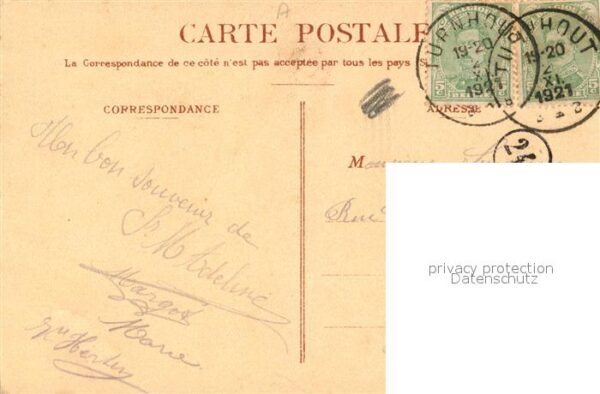 A
CARTE POSTALE
La Correspondance de ce côté n'est pas acceptée par tous les pays
CORRESPONDANCE
ADRESSE
TURNHOUT
19-20
XI
1921
TURNHOUT
19-20
XI
1921
24
Mon bon souvenir de
Sr M. Adeline
Margot
Marie
M
Rue
privacy protection
Datenschutz